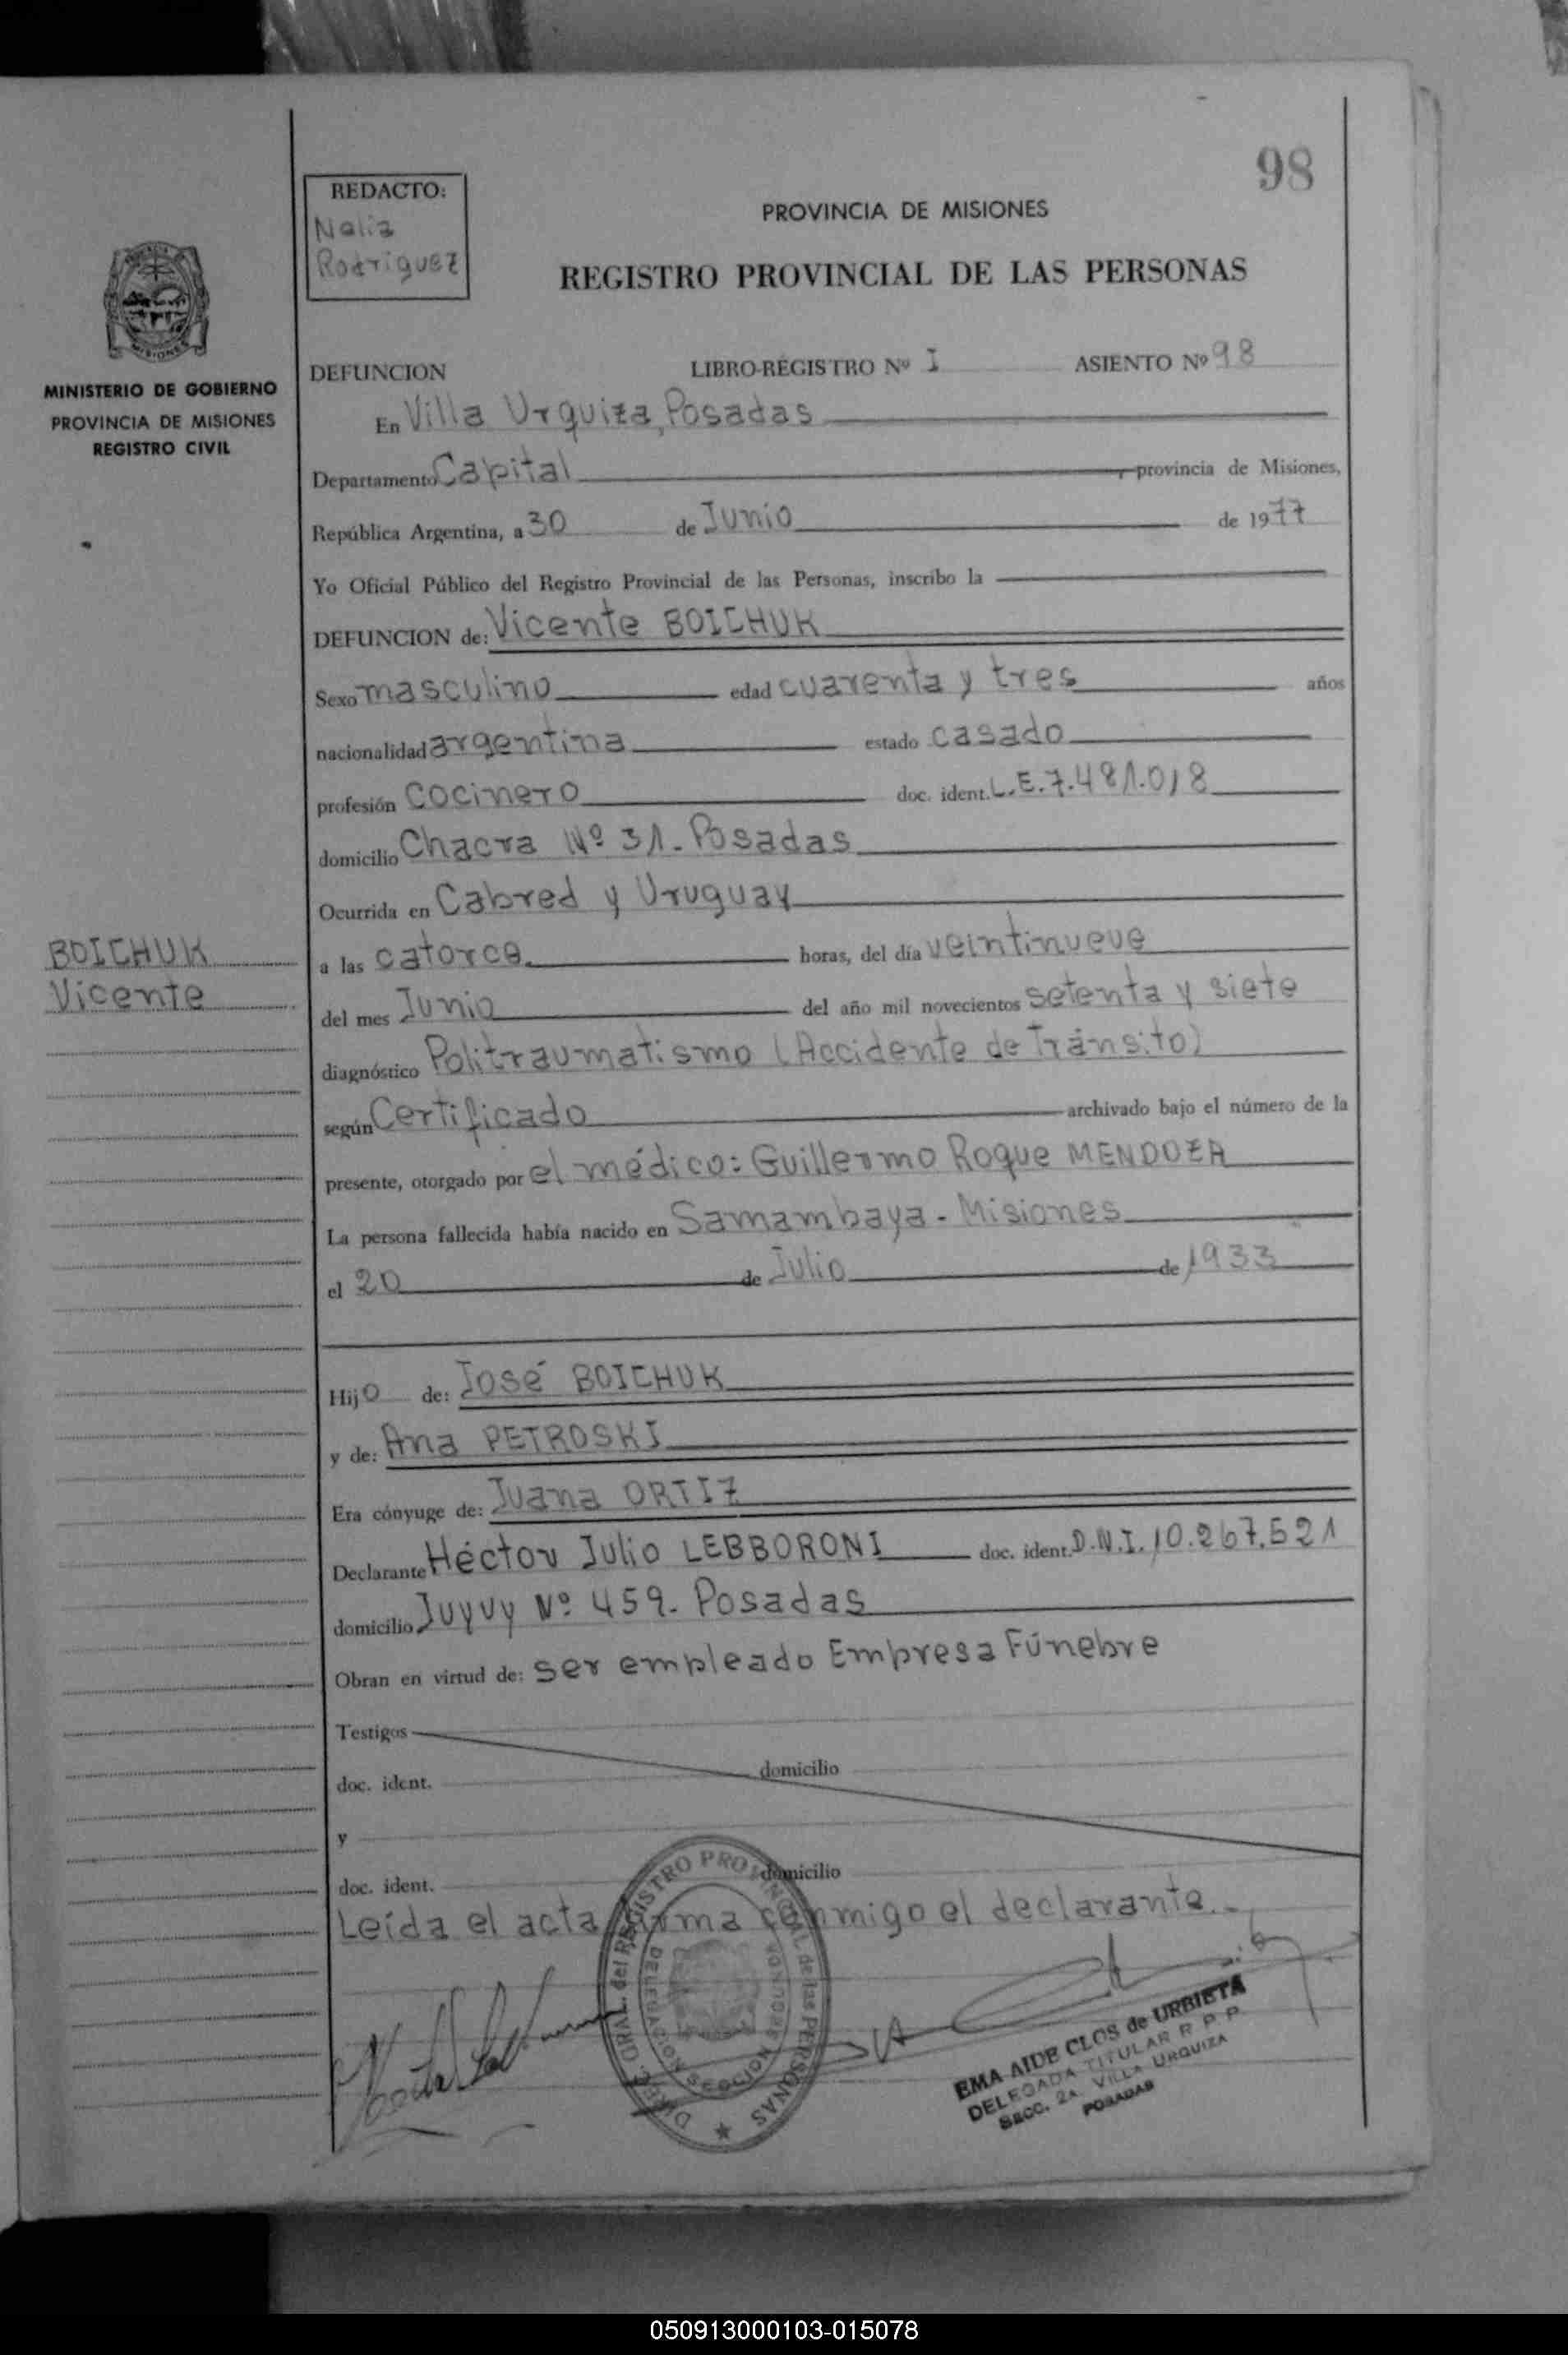 98
REDACTO:
Nelia
Rodriguez
PROVINCIA DE MISIONES
REGISTRO PROVINCIAL DE LAS PERSONAS
MINISTERIO DE GOBIERNO
PROVINCIA DE MISIONES
REGISTRO CIVIL
DEFUNCION LIBRO-REGISTRO Nº I ASIENTO Nº 98
En Villa Urquiza, Posadas
Departamento Capital, provincia de Misiones,
República Argentina, a 30 de Junio de 1977
Yo Oficial Público del Registro Provincial de las Personas, inscribo la
DEFUNCION de: Vicente BOICHUK
Sexo masculino edad cuarenta y tres años
nacionalidad argentina estado casado
profesión cocinero doc. ident. L.E. 7.481.018
domicilio Chacra Nº 31. Posadas
Ocurrida en Cabred y Uruguay
BOICHUK
Vicente
a las catorce. horas, del día veintinueve
del mes Junio del año mil novecientos setenta y siete
diagnóstico Politraumatismo (Accidente de Tránsito)
según Certificado archivado bajo el número de la
presente, otorgado por el médico: Guillermo Roque MENDOZA
La persona fallecida había nacido en Samambaya - Misiones
el 20 de Julio de 1933
Hijo de: José BOICHUK
y de: Ana PETROSKI
Era cónyuge de: Juana ORTIZ
Declarante Héctor Julio LEBBORONI doc. ident. D.N.I. 10.267.521
domicilio Jujuy Nº 459. Posadas
Obran en virtud de: ser empleado Empresa Fúnebre
Testigos
doc. ident. domicilio
y
doc. ident. domicilio
Leída el acta firma conmigo el declarante.-
DIREC. GRAL. del REGISTRO PROVINCIAL de las PERSONAS
DELEGACION SECCION SEGUNDA
EMA AIDE CLOS de URBIETA
DELEGADA TITULAR R. P. P.
SECC. 2a. VILLA URQUIZA
POSADAS
050913000103-015078